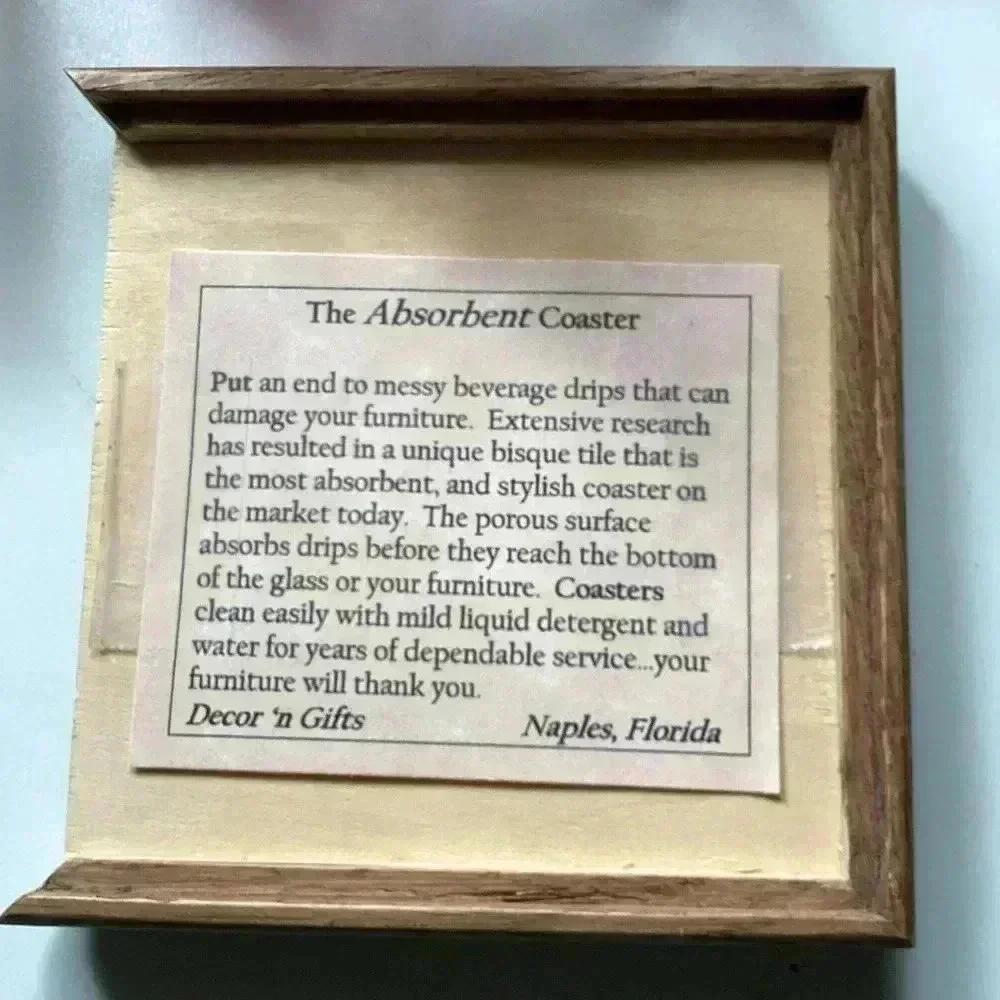 The Absorbent Coaster
Put an end to messy beverage drips that can
damage your furniture. Extensive research
has resulted in a unique bisque tile that is
the most absorbent, and stylish coaster on
the market today. The porous surface
absorbs drips before they reach the bottom
of the glass or your furniture. Coasters
clean easily with mild liquid detergent and
water for years of dependable service...your
furniture will thank you.
Decor 'n Gifts Naples, Florida